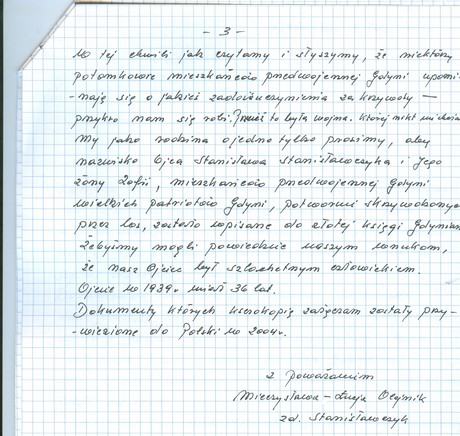 - 3 -
W tej chwili jak czytamy i słyszymy, że niektórzy
potomkowie mieszkańców przedwojennej Gdyni upomi-
-nają się o jakieś zadośćuczynienia za krzywdy —
przykro nam się robi. Przecież to była wojna, której nikt nie chciał
My jako rodzina o jedno tylko prosimy, aby
nazwisko Ojca Stanisława Stanisławczyka i Jego
żony Zofii, mieszkańców przedwojennej Gdyni
wielkich patriotów Gdyni, potwornie skrzywdzonych
przez los, zostało wpisane do złotej księgi Gdynian
Żebyśmy mogli powiedzieć naszym wnukom,
że nasz Ojciec był szlachetnym człowiekiem.
Ojciec w 1939r. miał 36 lat.
Dokumenty których kserokopię załączam zostały przy-
-wiezione do Polski w 2004r.
z poważaniem
Mieczysława - Łucja Olejnik
zd. Stanisławczyk